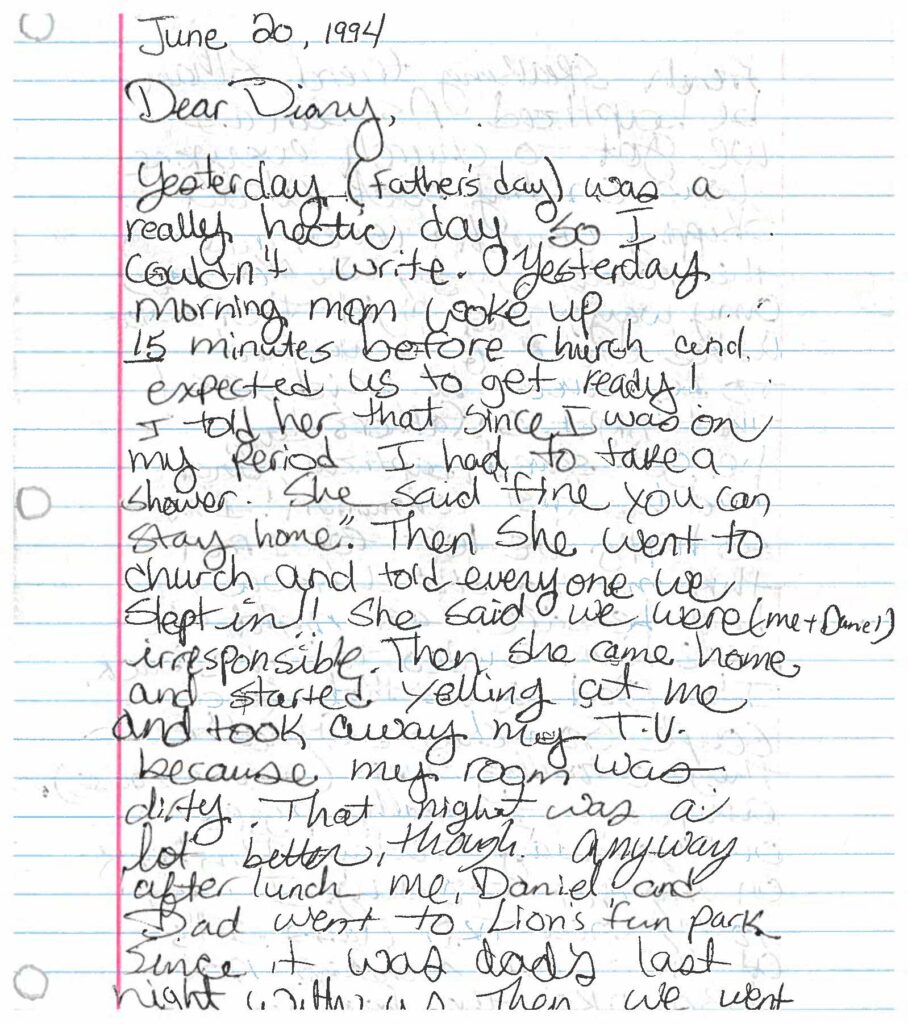 June 20, 1994
Dear Diary,
Yesterday (father's day) was a
really hectic day so I
couldn't write. Yesterday
morning mom woke up
15 minutes before church and
expected us to get ready!
I told her that since I was on
my period I had to take a
shower. She said "fine you can
stay home". Then she went to
church and told everyone we
slept in!! She said we were (me + Daniel)
irresponsible. Then she came home
and started yelling at me
and took away my T.V.
because my room was
dirty. That night was a
lot better, though. Anyway
after lunch me, Daniel and
Dad went to Lion's fun park
Since it was dad's last
night with us. Then we went